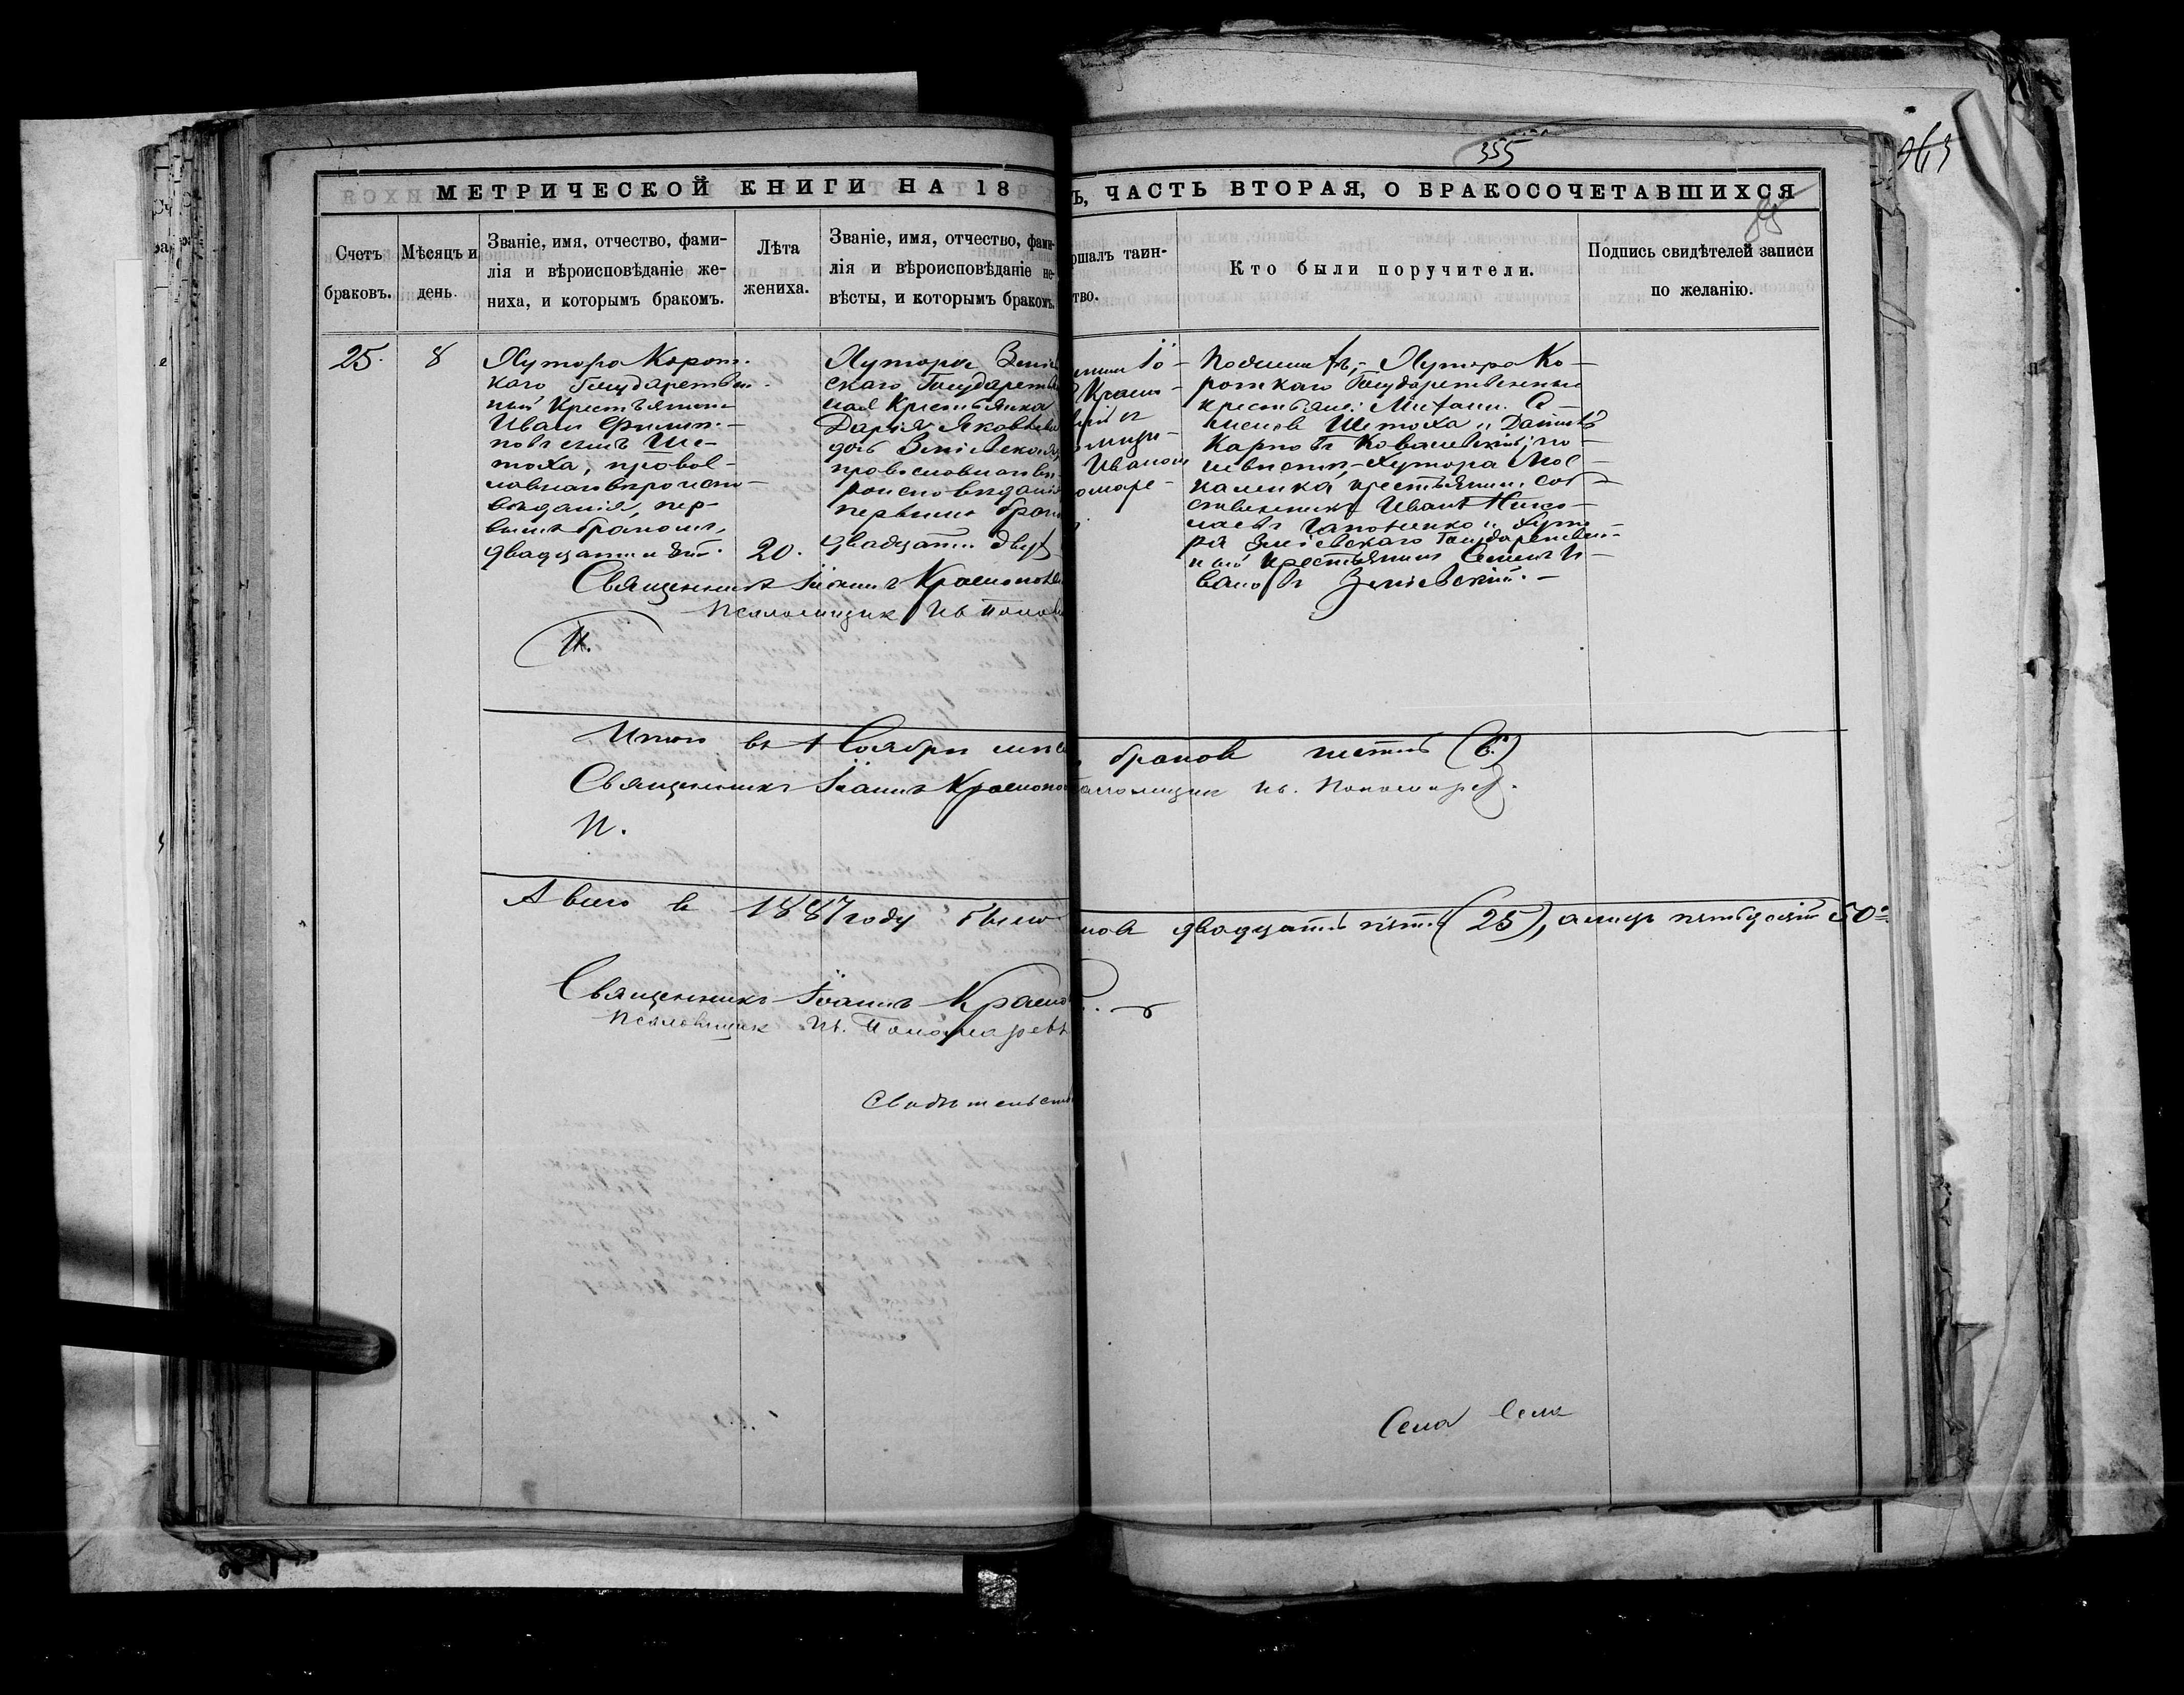 355
МЕТРИЧЕСКОЙ КНИГИ НА 18
Ъ, ЧАСТЬ ВТОРАЯ, О БРАКОСОЧЕТАВШИХСЯ
Счетъ браковъ.
Мѣсяцъ и день
Званіе, имя, отчество, фами-
лія и вѣроисповѣданіе же-
ниха, и которымъ бракомъ.
Лѣта
жениха.
Званіе, имя, отчество, фами-
лія и вѣроисповѣданіе не-
вѣсты, и которымъ бракомъ.
ршалъ таин-
тво.
Кто были поручители.
Подпись свидѣтелей записи
по желанію.
25.
8
Хутора Корот-
каго Государствен-
ный Крестьянинъ
Иванъ Филип-
повъ сынъ Ше-
тоха, правос-
лавнаго вѣроиспо-
вѣданія, пер-
вымъ бракомъ,
двадцати лѣт.
20.
Хутора Зміев
скаго Государствен
ная Крестьянка
Дарія Яковлева
дочь Зміевская
православнаго вѣ
роисповѣданія
первымъ бракомъ
двадцати двухъ
Іо-
Красно-
Иваномъ
ономаре-
По женихѣ: Хутора Ко-
роткаго Государственные
крестьяне: Се-
меновъ Шетоха и Даніилъ
Карповъ Ковалевскій; по
невѣстѣ: Хутора
крестьянинъ соб-
ственникъ Иванъ Нико-
лаевъ Гапоненко и Хуто-
ра Зміевскаго Государствен-
ный крестьянинъ Семенъ И-
вановъ Зміевскій.
Священникъ Іоаннъ Краснопол
Псаломщик Ив Понома
Итого въ Ноябрѣ мѣс браковъ шесть (6)
Священникъ Іоаннъ Краснопо саломщик Ив. Пономаревъ.
А всего въ 1887 году было ковъ двадцать пять (25), а лицъ пятьдесятъ 50
Священникъ Іоаннъ Красно
Псаломщик Ив. Пономаревъ
Свидѣтельств
Села Села